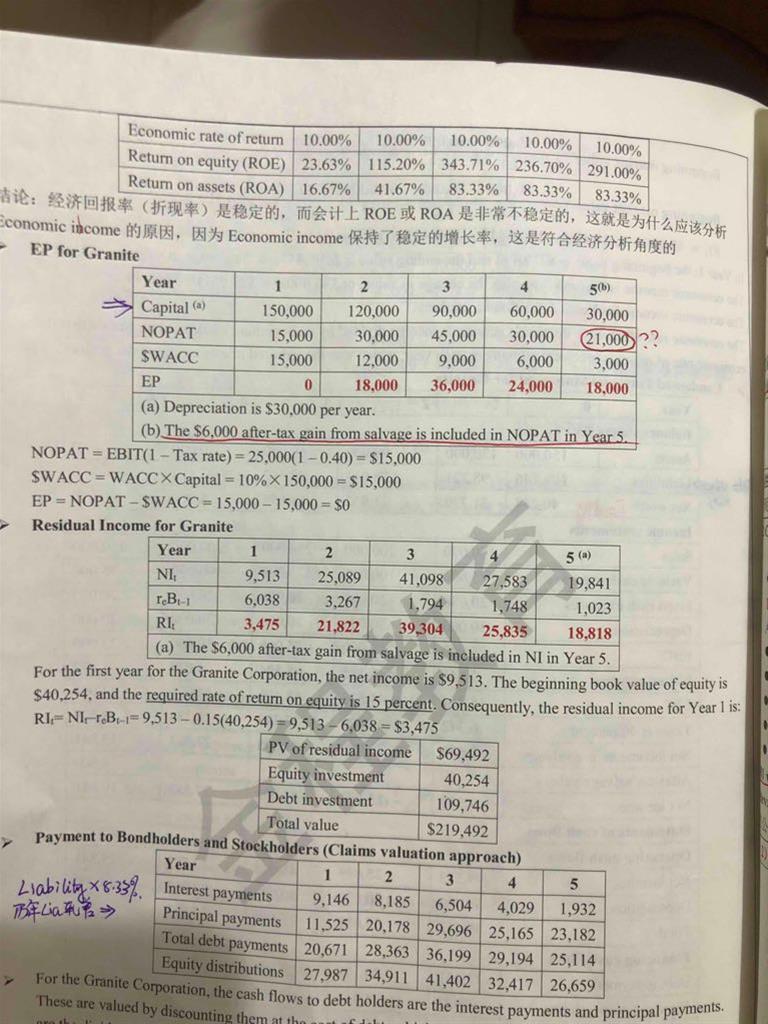 Economic rate of return 10.00% 10.00% 10.00% 10.00% 10.00%
Return on equity (ROE) 23.63% 115.20% 343.71% 236.70% 291.00%
Return on assets (ROA) 16.67% 41.67% 83.33% 83.33% 83.33%
结论：经济回报率（折现率）是稳定的，而会计上 ROE 或 ROA 是非常不稳定的，这就是为什么应该分析
Economic income 的原因，因为 Economic income 保持了稳定的增长率，这是符合经济分析角度的
EP for Granite
Year 1 2 3 4 5(b)
Capital (a) 150,000 120,000 90,000 60,000 30,000
NOPAT 15,000 30,000 45,000 30,000 21,000 ??
$WACC 15,000 12,000 9,000 6,000 3,000
EP 0 18,000 36,000 24,000 18,000
(a) Depreciation is $30,000 per year.
(b) The $6,000 after-tax gain from salvage is included in NOPAT in Year 5.
NOPAT = EBIT(1 – Tax rate) = 25,000(1 – 0.40) = $15,000
$WACC = WACC×Capital = 10%×150,000 = $15,000
EP = NOPAT – $WACC = 15,000 – 15,000 = $0
Residual Income for Granite
Year 1 2 3 4 5 (a)
NIt 9,513 25,089 41,098 27,583 19,841
reBt–1 6,038 3,267 1,794 1,748 1,023
RIt 3,475 21,822 39,304 25,835 18,818
(a) The $6,000 after-tax gain from salvage is included in NI in Year 5.
For the first year for the Granite Corporation, the net income is $9,513. The beginning book value of equity is
$40,254, and the required rate of return on equity is 15 percent. Consequently, the residual income for Year 1 is:
RIt= NIt–reBt–1= 9,513 – 0.15(40,254) = 9,513 – 6,038 = $3,475
PV of residual income $69,492
Equity investment 40,254
Debt investment 109,746
Total value $219,492
Payment to Bondholders and Stockholders (Claims valuation approach)
Year 1 2 3 4 5
Liability×8.33%
Interest payments 9,146 8,185 6,504 4,029 1,932
Principal payments 11,525 20,178 29,696 25,165 23,182
Total debt payments 20,671 28,363 36,199 29,194 25,114
Equity distributions 27,987 34,911 41,402 32,417 26,659
For the Granite Corporation, the cash flows to debt holders are the interest payments and principal payments.
These are valued by discounting them at the cost of debt
金程教育